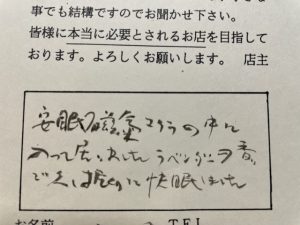 事でも結構ですのでお聞かせ下さい。
皆様に本当に必要とされるお店を目指して
おります。よろしくお願いします。 店主
安眠 磁氣 の中に
入って居 ました ラベンダー 香
で 久し振りに 快眠 ました
お名前 TEL